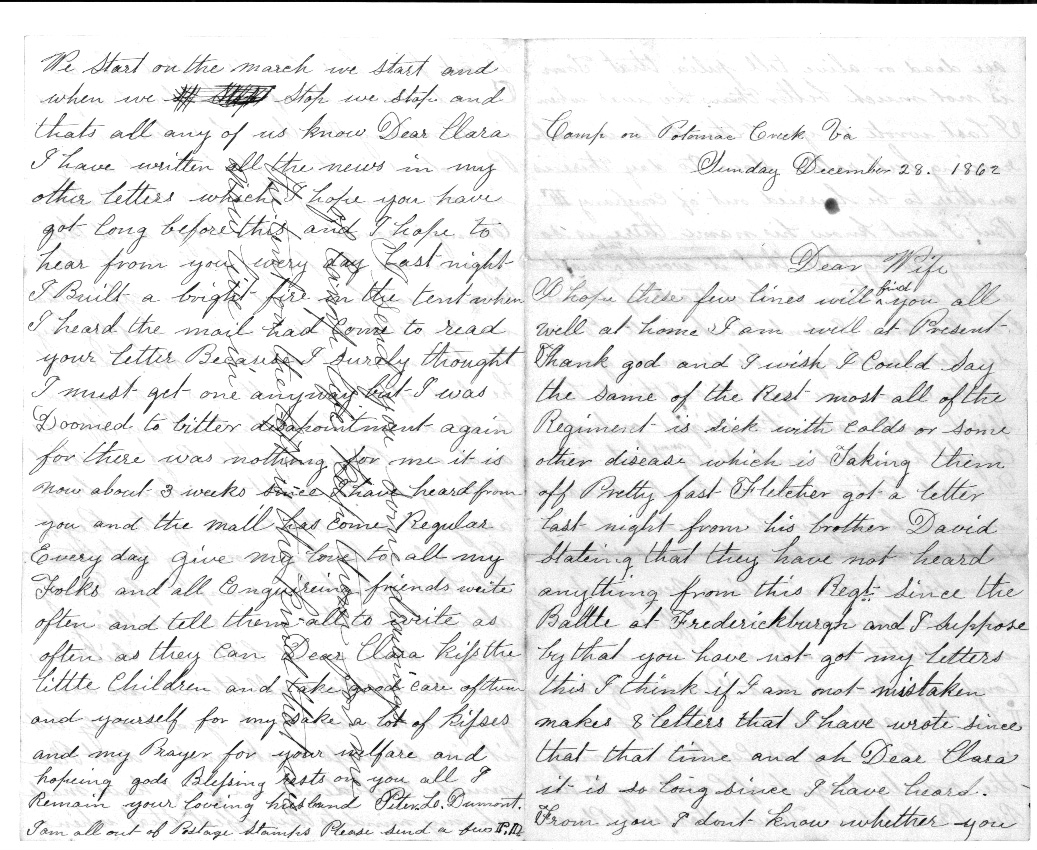 Camp on Potomac Creek Va
Sunday December 28. 1862
Dear Wife
I hope these few lines will find you all
well at home I am well at Present
Thank god and I wish I Could say
the same of the Rest most all of the
Regiment is sick with Colds or some
other disease which is Taking them
off Pretty fast Fletcher got a letter
last night from his brother David
stateing that they have not heard
anything from this Regt. since the
Battle at Frederickburgh and I suppose
by that you have not got my letters
this I think if I am not mistaken
makes 8 letters that I have wrote since
that that time and oh Dear Clara
it is so long since I have heard.
From you I dont know whether you
We start on the march we start and
when we stop we stop and
thats all any of us know Dear Clara
I have written all the news in my
other letters which I hope you have
got long before this and I hope to
hear from you every day Last night
I Built a bright fire in the tent when
I heard the mail had Come to read
your letter Because I surely thought
I must get one anyway but I was
Doomed to bitter disapointment again
for there was nothing for me it is
now about 3 weeks since I have heard from
you and the mail has come Regular
Every day give my love to all my
Folks and all Enquireing friends write
often and tell them all to write as
often as they Can Dear Clara kiss the
little Children and take good care of them
and yourself for my sake a lot of kisses
and my Prayer for your welfare and
hopeing gods Blessing rests on you all I
Remain your loveing husband Peter L. Dumont.
I am all out of Postage Stamps Please send a few P.D.
I send you some drawings
of camp life for me